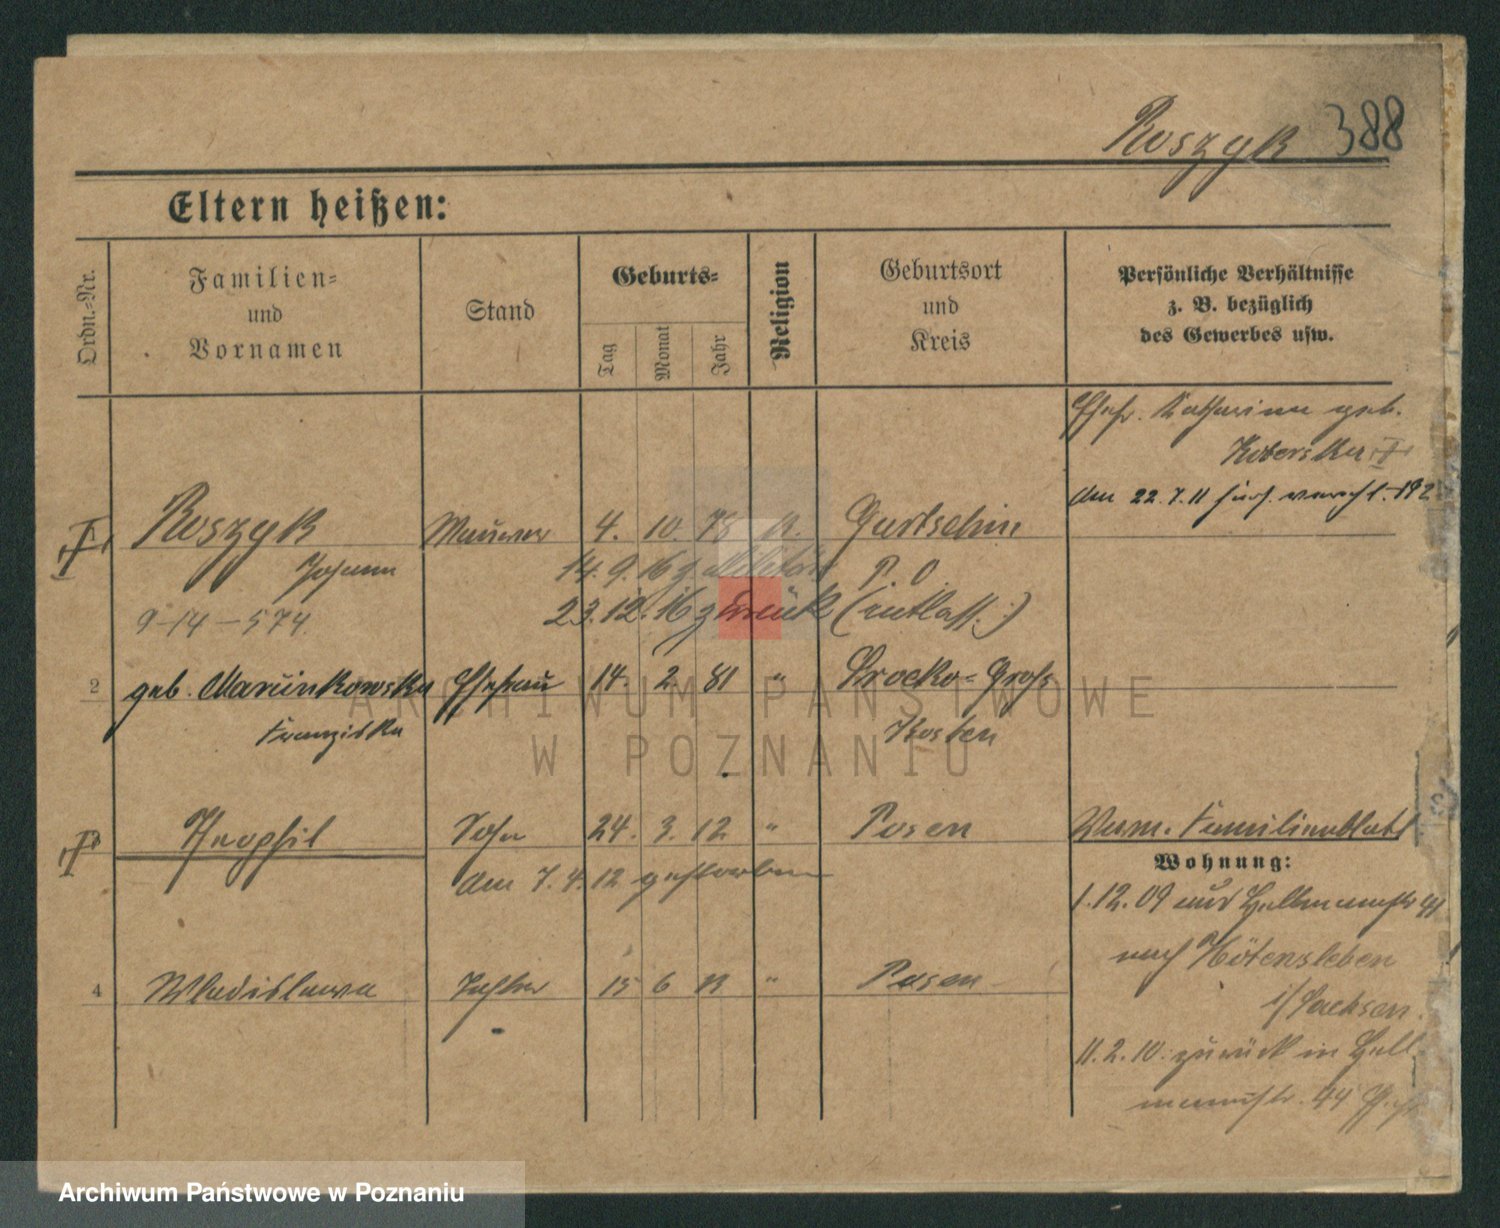 Roszyk 388
Eltern heißen:
Ordn.-Nr.
Familien-
und
Vornamen
Stand
Geburts-
Tag
Monat
Jahr
Religion
Geburtsort
und
Kreis
Persönliche Verhältnisse
z. B. bezüglich
des Gewerbes usw.
Ehefr. Katharina geb.
Koberska
am 22.7.11
Roszyk Maurer 4. 10. 75 K. Gurtschin
Johann 14.9.16 z Militär P. O.
9-14-574. 23.12.16 zurück (entlass.)
2 geb. Marcinkowska Ehefrau 14. 2. 81 " Srocko-Groß
Franziska Kosten
Theophil Sohn 24. 3. 12 " Posen Verm. Familienblatt
am 7.4.12 gestorben
Wohnung:
1.12.09 aus
nach Hötensleben
i/Sachsen.
4 Wladislawa Tochter 15 6 13 " Posen
11.2.10. zurück in Hell
mannstr. 44
ARCHIWUM PAŃSTWOWE
W POZNANIU
Archiwum Państwowe w Poznaniu